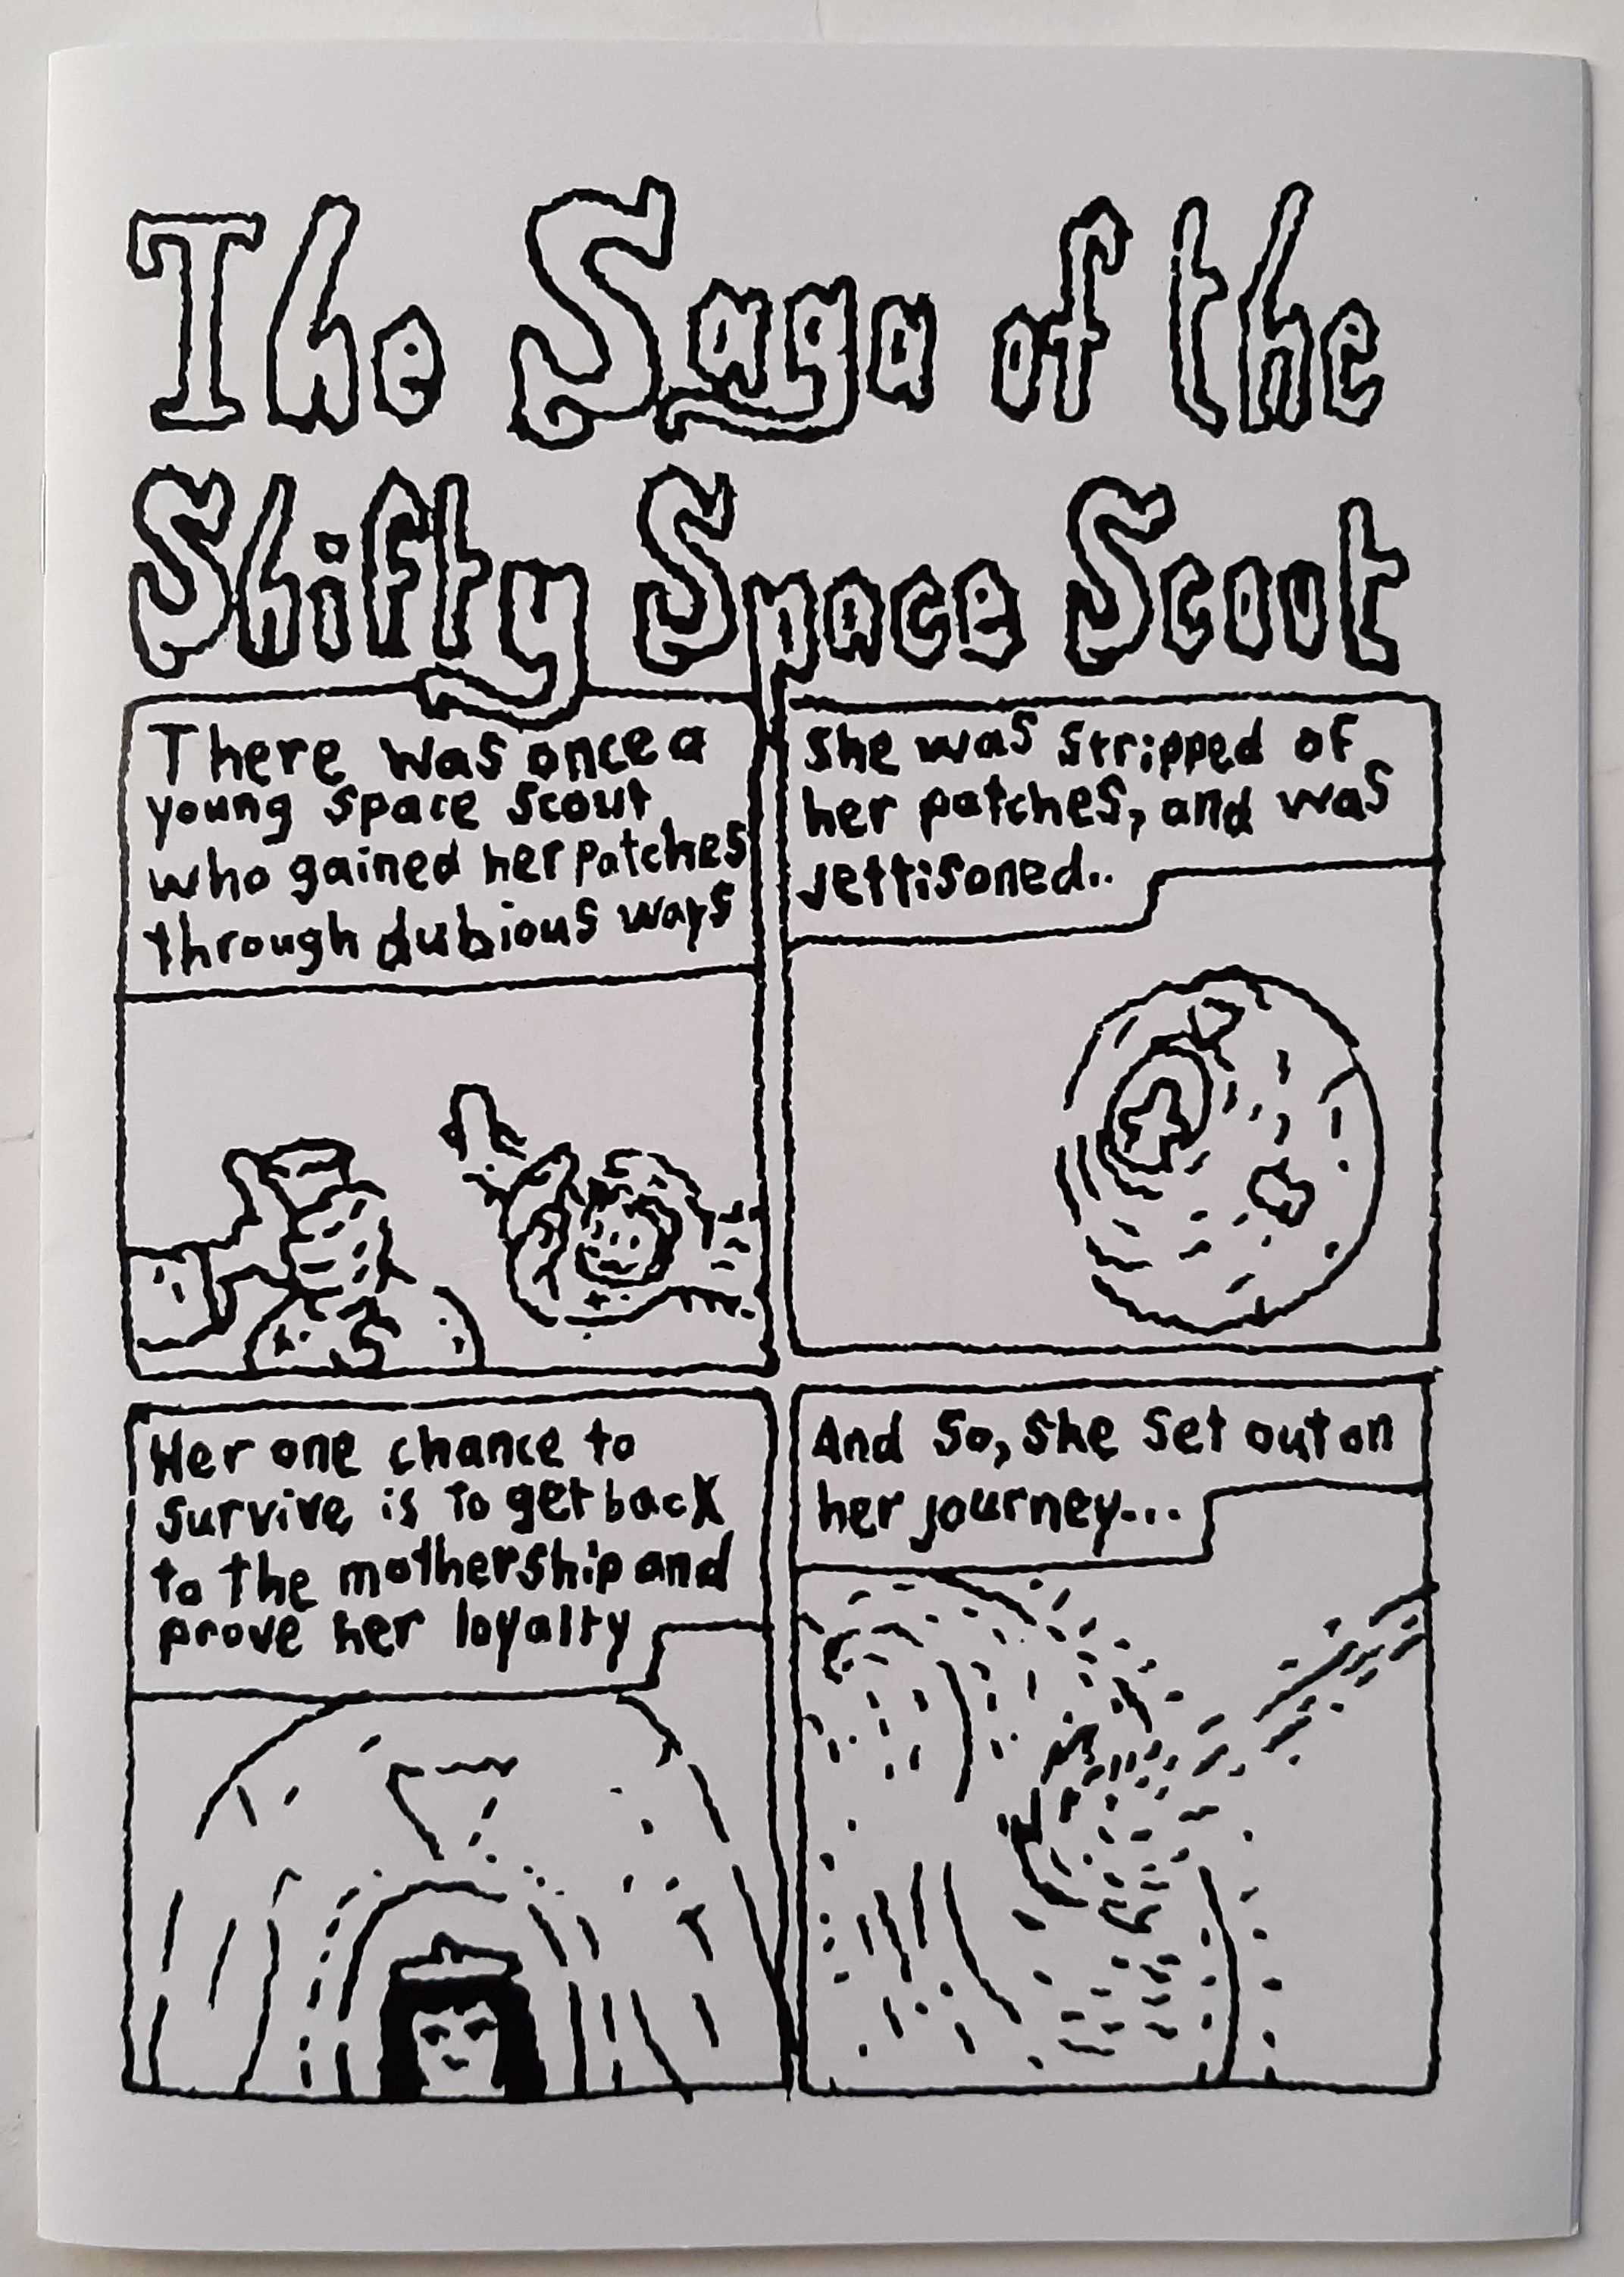 The Saga of the
Shifty Space Scout
There was once a
young space scout
who gained her patches
through dubious ways
She was stripped of
her patches, and was
jettisoned..
Her one chance to
survive is to get back
to the mothership and
prove her loyalty
And so, she set out on
her journey...